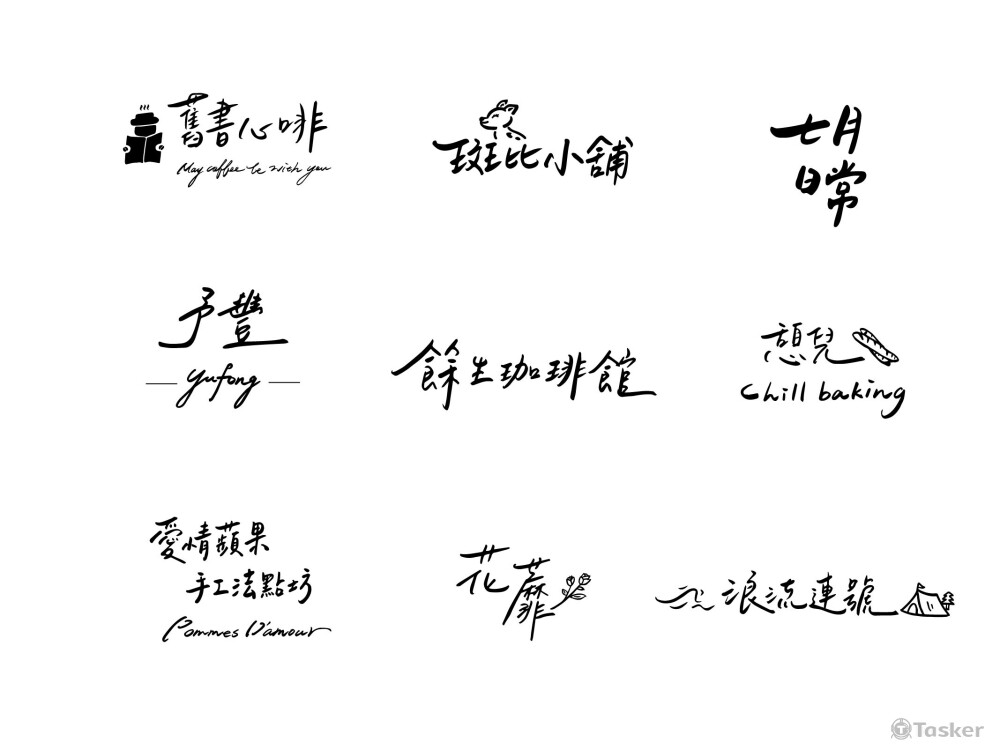 舊書心啡
May coffee be with you
斑比小舖
七月
日常
予豐
yufong
餘生珈琲館
憩兒
Chill baking
愛情蘋果
手工法點坊
Pommes D'amour
花蘼
浪流連號
Tasker